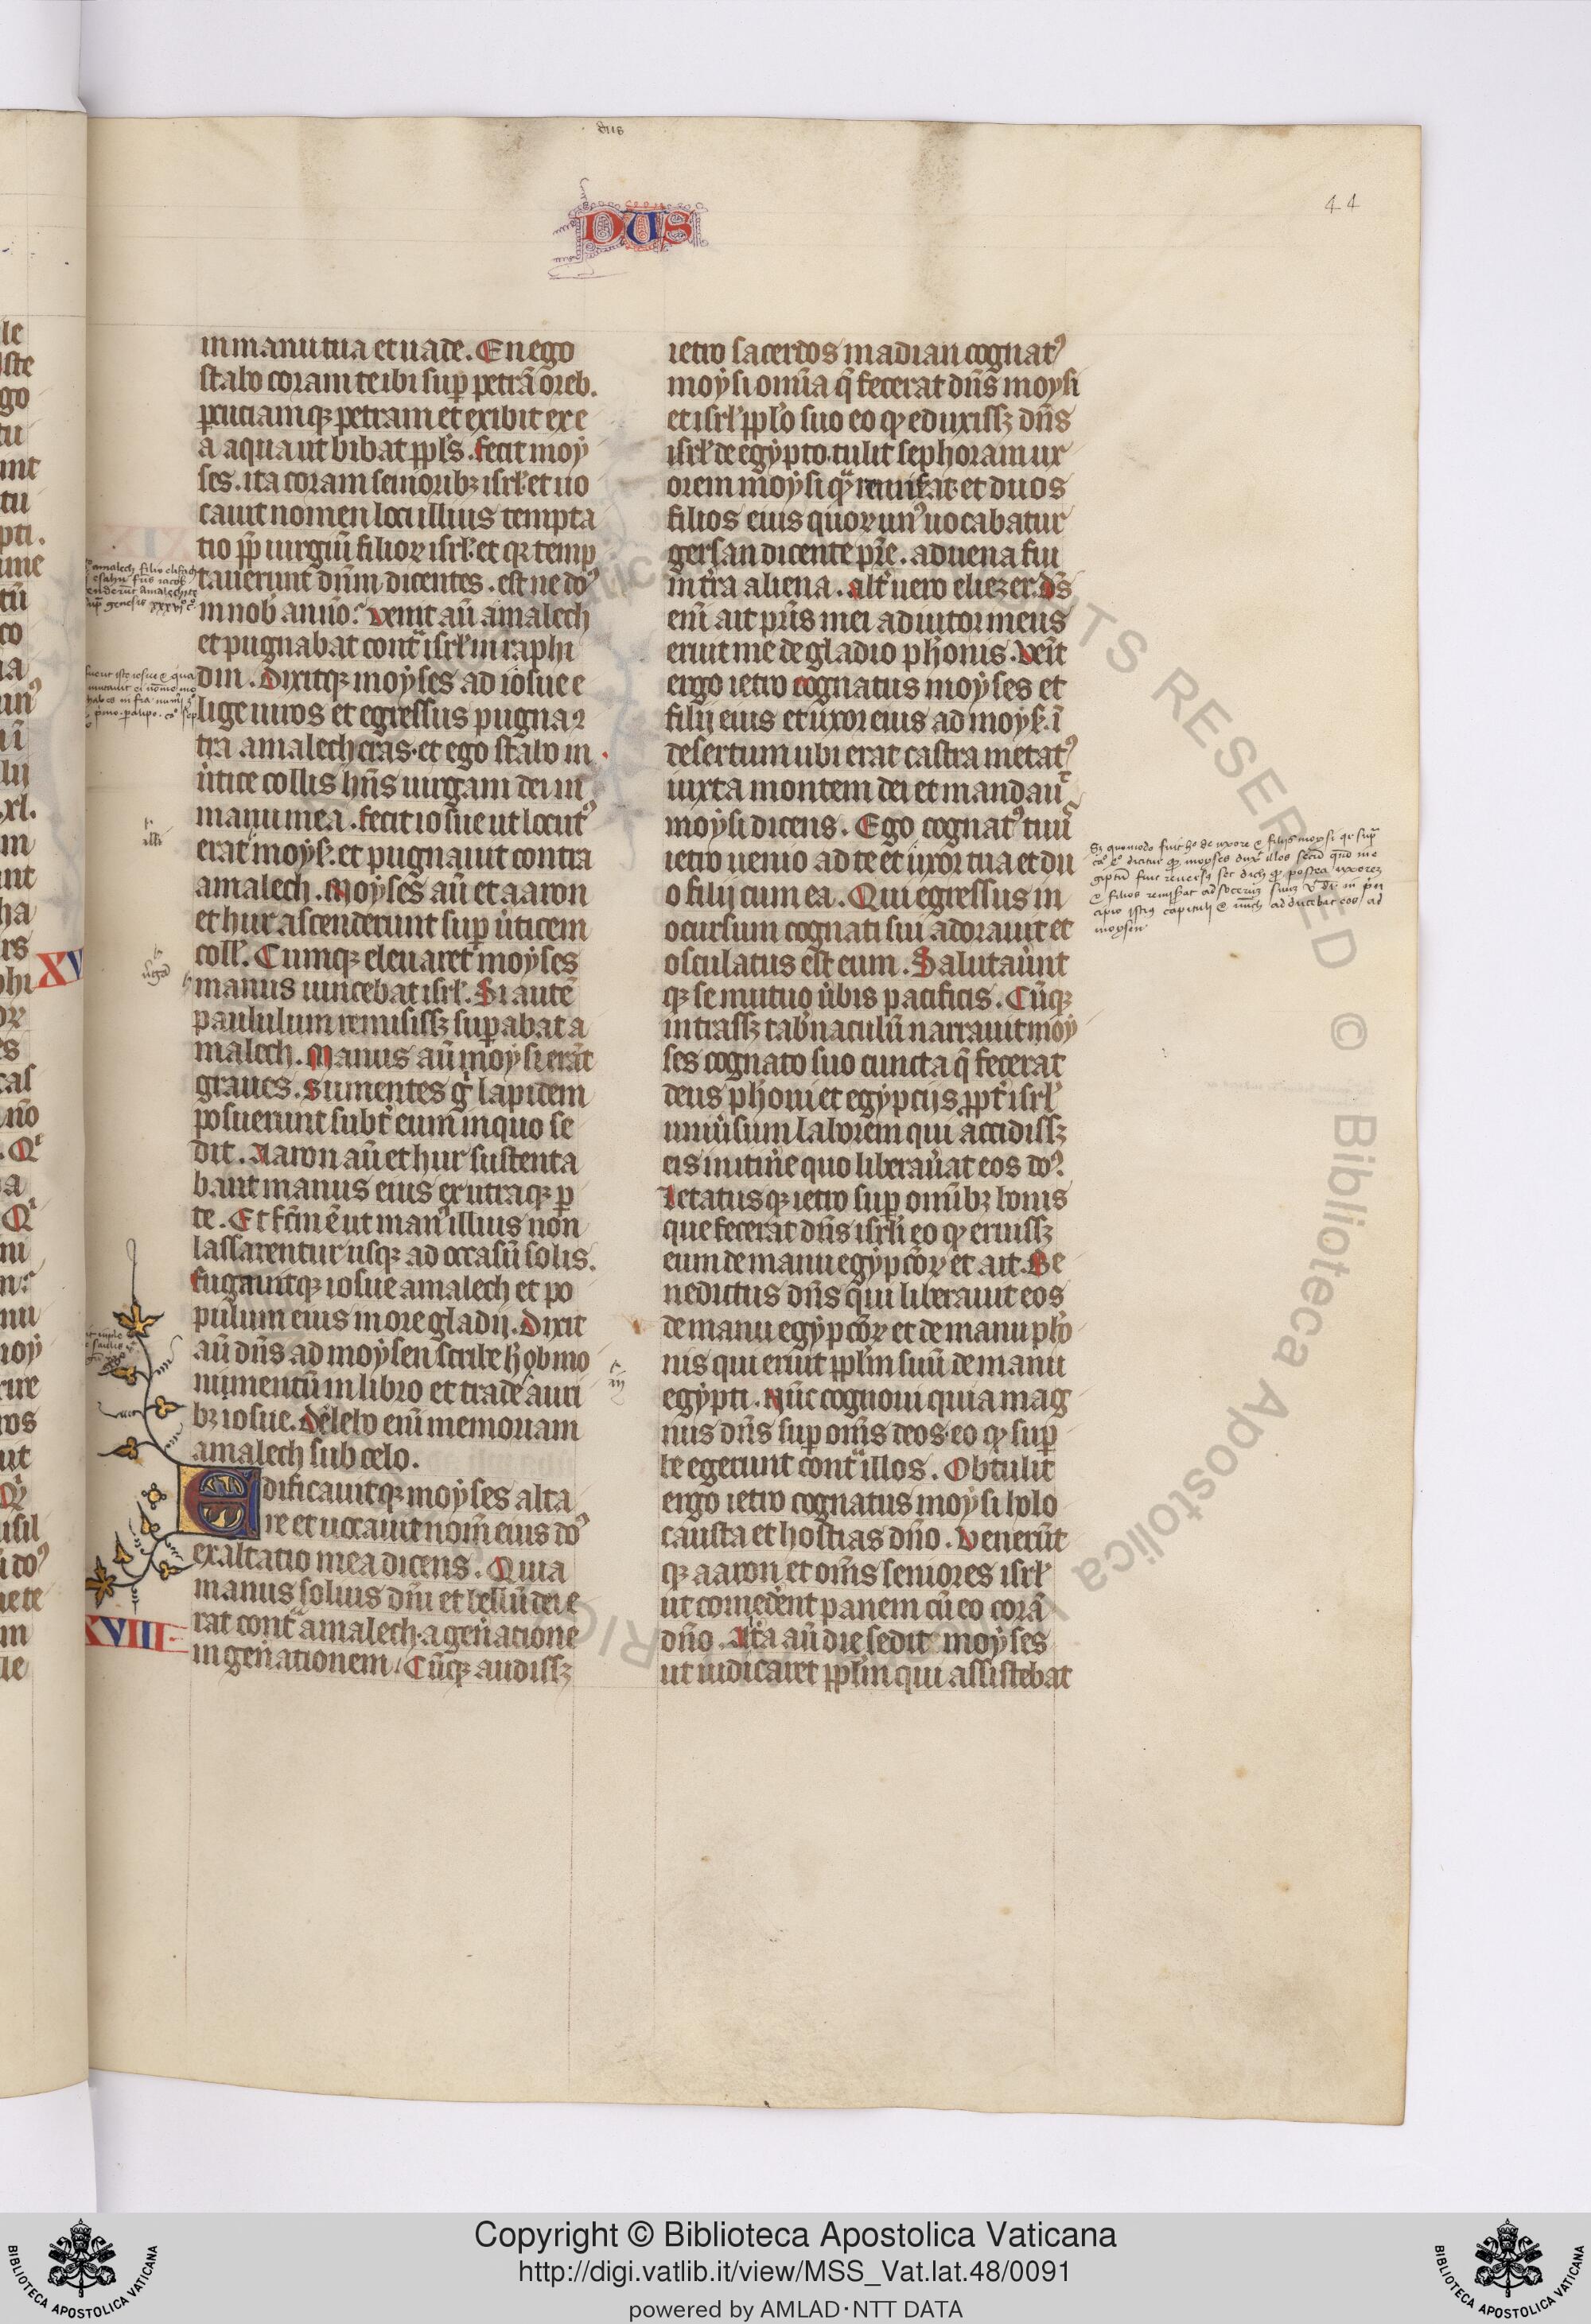 dus
DUS
44
in manu tua et uade. En ego
stabo coram te ibi sup̱ petrā oreb.
ꝑcutiamqꝫ petram et exibit ex e
a aqua ut bibat ppl̓s. fecit moy
ses. ita coram senioribꝫ isrl̓. et uo
cauit nomen loci illius tempta
tio ꝓp̄ iurgiū filioꝝ isrl̓. et qꝛ temp
tauerunt dn̄m. dicentes. est ne do᷒
in nob̓ an nō. Venit aū amalech
et pugnabat cont̾ isrl̓ in raphi
din. Dixitqꝫ moyses ad iosue e
lige uiros et egressus pugna ꝯ
tra amalech cras. et ego stabo in
u̓tice collis hn̄s uirgam dei in
manu mea. fecit iosue ut locut᷒
erat moys̓. et pugnauit contra
amalech. Moyses aū et aaron
et hur ascenderunt sup̱ u̓ticem
coll̓. Cumqꝫ eleuaret moyses
manus uincebat isrl̓. Si autē
paululum remisissꝫ sup̱abat a
malech. Manus aū moysi erāt
graues. Sumentes g̓ lapidem
posuerunt subt̓ eum in quo se
dit. Aaron aū et hur sustenta
bant manus eius ex utraqꝫ ꝑ
te. Et fc̄m ē ut man᷒ illius non
lassarentur usqꝫ ad occasū solis.
fugauitqꝫ iosue amalech et po
pulum eius in ore gladij. Dixit
aū dn̄s ad moysen scribe h̓ ob mo
numentū in libro et trade auri
bꝫ iosue. Delebo eni̅ memoriam
amalech sub celo.
Edificauitqꝫ moyses alta
re et uocauit nom̄ eius do᷒
exaltatio mea dicens. Quia
manus solius dn̄i et bellū dei e
rat cont̾ amalech. a gen̓atione
in gen̓ationem. Cūqꝫ audissꝫ
XVIII
ietro sacerdos madian cognat᷒
moysi omīa q̄ fecerat dn̄s moysi
et isrl̓ ppl̓o suo eo ꝙ eduxissꝫ dn̄s
isrl̓ de egypto. tulit sephoram ux
orem moysi qᷓ remiserat. et duos
filios eius quoꝝ un᷒ uocabatur
gersan dicente pr̄e. aduena fui
in t̓ra aliena. Alt̓ uero eliezer. Ds̄
eni̅ ait pr̄is mei adiutor meus
eruit me de gladio ph̓onis. Ven̄it
ergo ietro cognatus moyses et
filij eius et uxor eius ad moys̓. ī
desertum ubi erat castra metat᷒
iuxta montem dei et mandauit
moysi dicens. Ego cognat᷒ tuus
ietro uenio ad te et uxor tua et du
o filij cum ea. Qui egressus in
ocursum cognati sui adorauit et
osculatus est eum. Salutau̓unt
qꝫ se mutuo u̓bis pacificis. Cūqꝫ
intrassꝫ tab̓naculū narrauit moy
ses cognato suo cuncta q̄ fecerat
deus ph̓oni et egyptijs. ꝓpt̓ isrl̓
uniu̓sum laborem qui accidissꝫ
eis in itin̓e quo liberau̓at eos do᷒.
Letatusqꝫ ietro sup̱ omībꝫ bonis
que fecerat dn̄s isrl̓i eo ꝙ eruissꝫ
eum de manu egyptioꝝ et ait. Be
nedictus dn̄s qui liberauit eos
de manu egyptioꝝ et de manu ph̓o
nis qui eruit ppl̓m suū de manu
egypti. Nūc cognoui quia mag
nus dn̄s sup̱ om̄s deos. eo ꝙ sup̱
be egerunt cont̾ illos. Obtulit
ergo ietro cognatus moysi holo
causta et hostias dn̄o. Venerūt
qꝫ aaron et om̄s seniores isrl̓
ut comedēnt panem cū eo corā
dn̄o. Alt̓a aū die sedit moyses
ut iudicaret ppl̓m qui assistebat
Copyright © Biblioteca Apostolica Vaticana
http://digi.vatlib.it/view/MSS_Vat.lat.48/0091
powered by AMLAD·NTT DATA
BIBLIOTECA APOSTOLICA VATICANA
BIBLIOTECA APOSTOLICA VATICANA